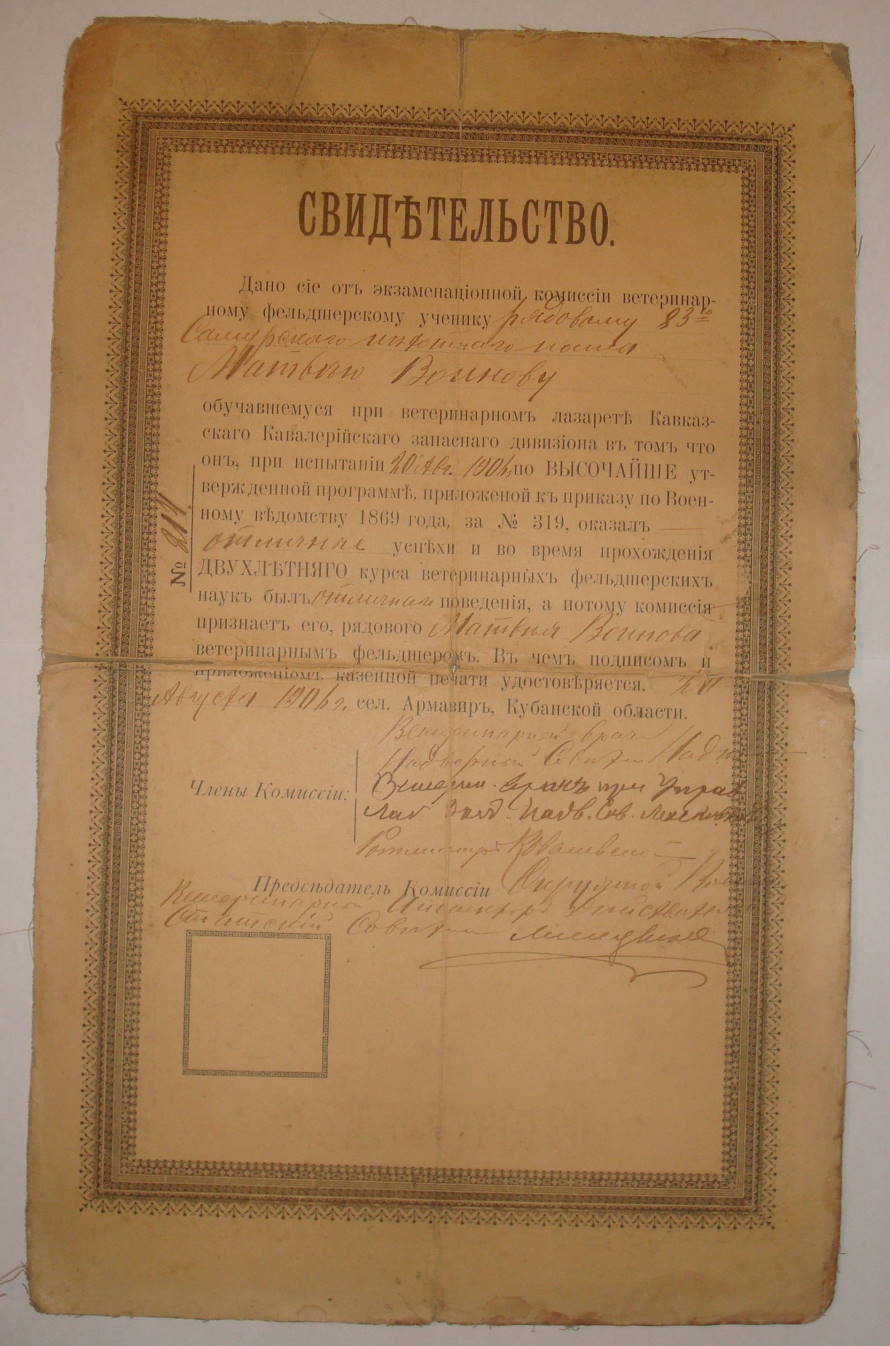 СВИДѢТЕЛЬСТВО.
Дано сіе отъ экзаменаціонной комиссіи ветеринар-
ному фельдшерскому ученику рядовому 83го
Самурскаго пѣхотнаго полка
Матвѣю Воинову
обучавшемуся при ветеринарномъ лазаретѣ Кавказ-
скаго Кавалерійскаго запаснаго дивизіона въ томъ что
онъ, при испытаніи 20 Авг. по ВЫСОЧАЙШЕ ут-
вержденной программѣ, приложеной къ приказу по Воен-
ному вѣдомству 1869 года, за № 319, оказалъ
отличные успѣхи и во время прохожденія
ДВУХЛѢТНЯГО курса ветеринарныхъ фельдшерскихъ
наукъ былъ поведенія, а потому комиссія
признаетъ его, рядового Матвѣя Воинова
ветеринарнымъ фельдшеромъ. Въ чемъ подписомъ и
приложеніомъ казенной печати удостовѣряется.
Августа сел. Армавиръ, Кубанской области.
№
Ветеринарный врачъ
Надворный
Члены Комиссіи:
Надв. Сов.
Ротмистръ
Предсѣдатель Комиссіи Окружной
Ветеринарный Инспекторъ
Статскій Совѣтникъ